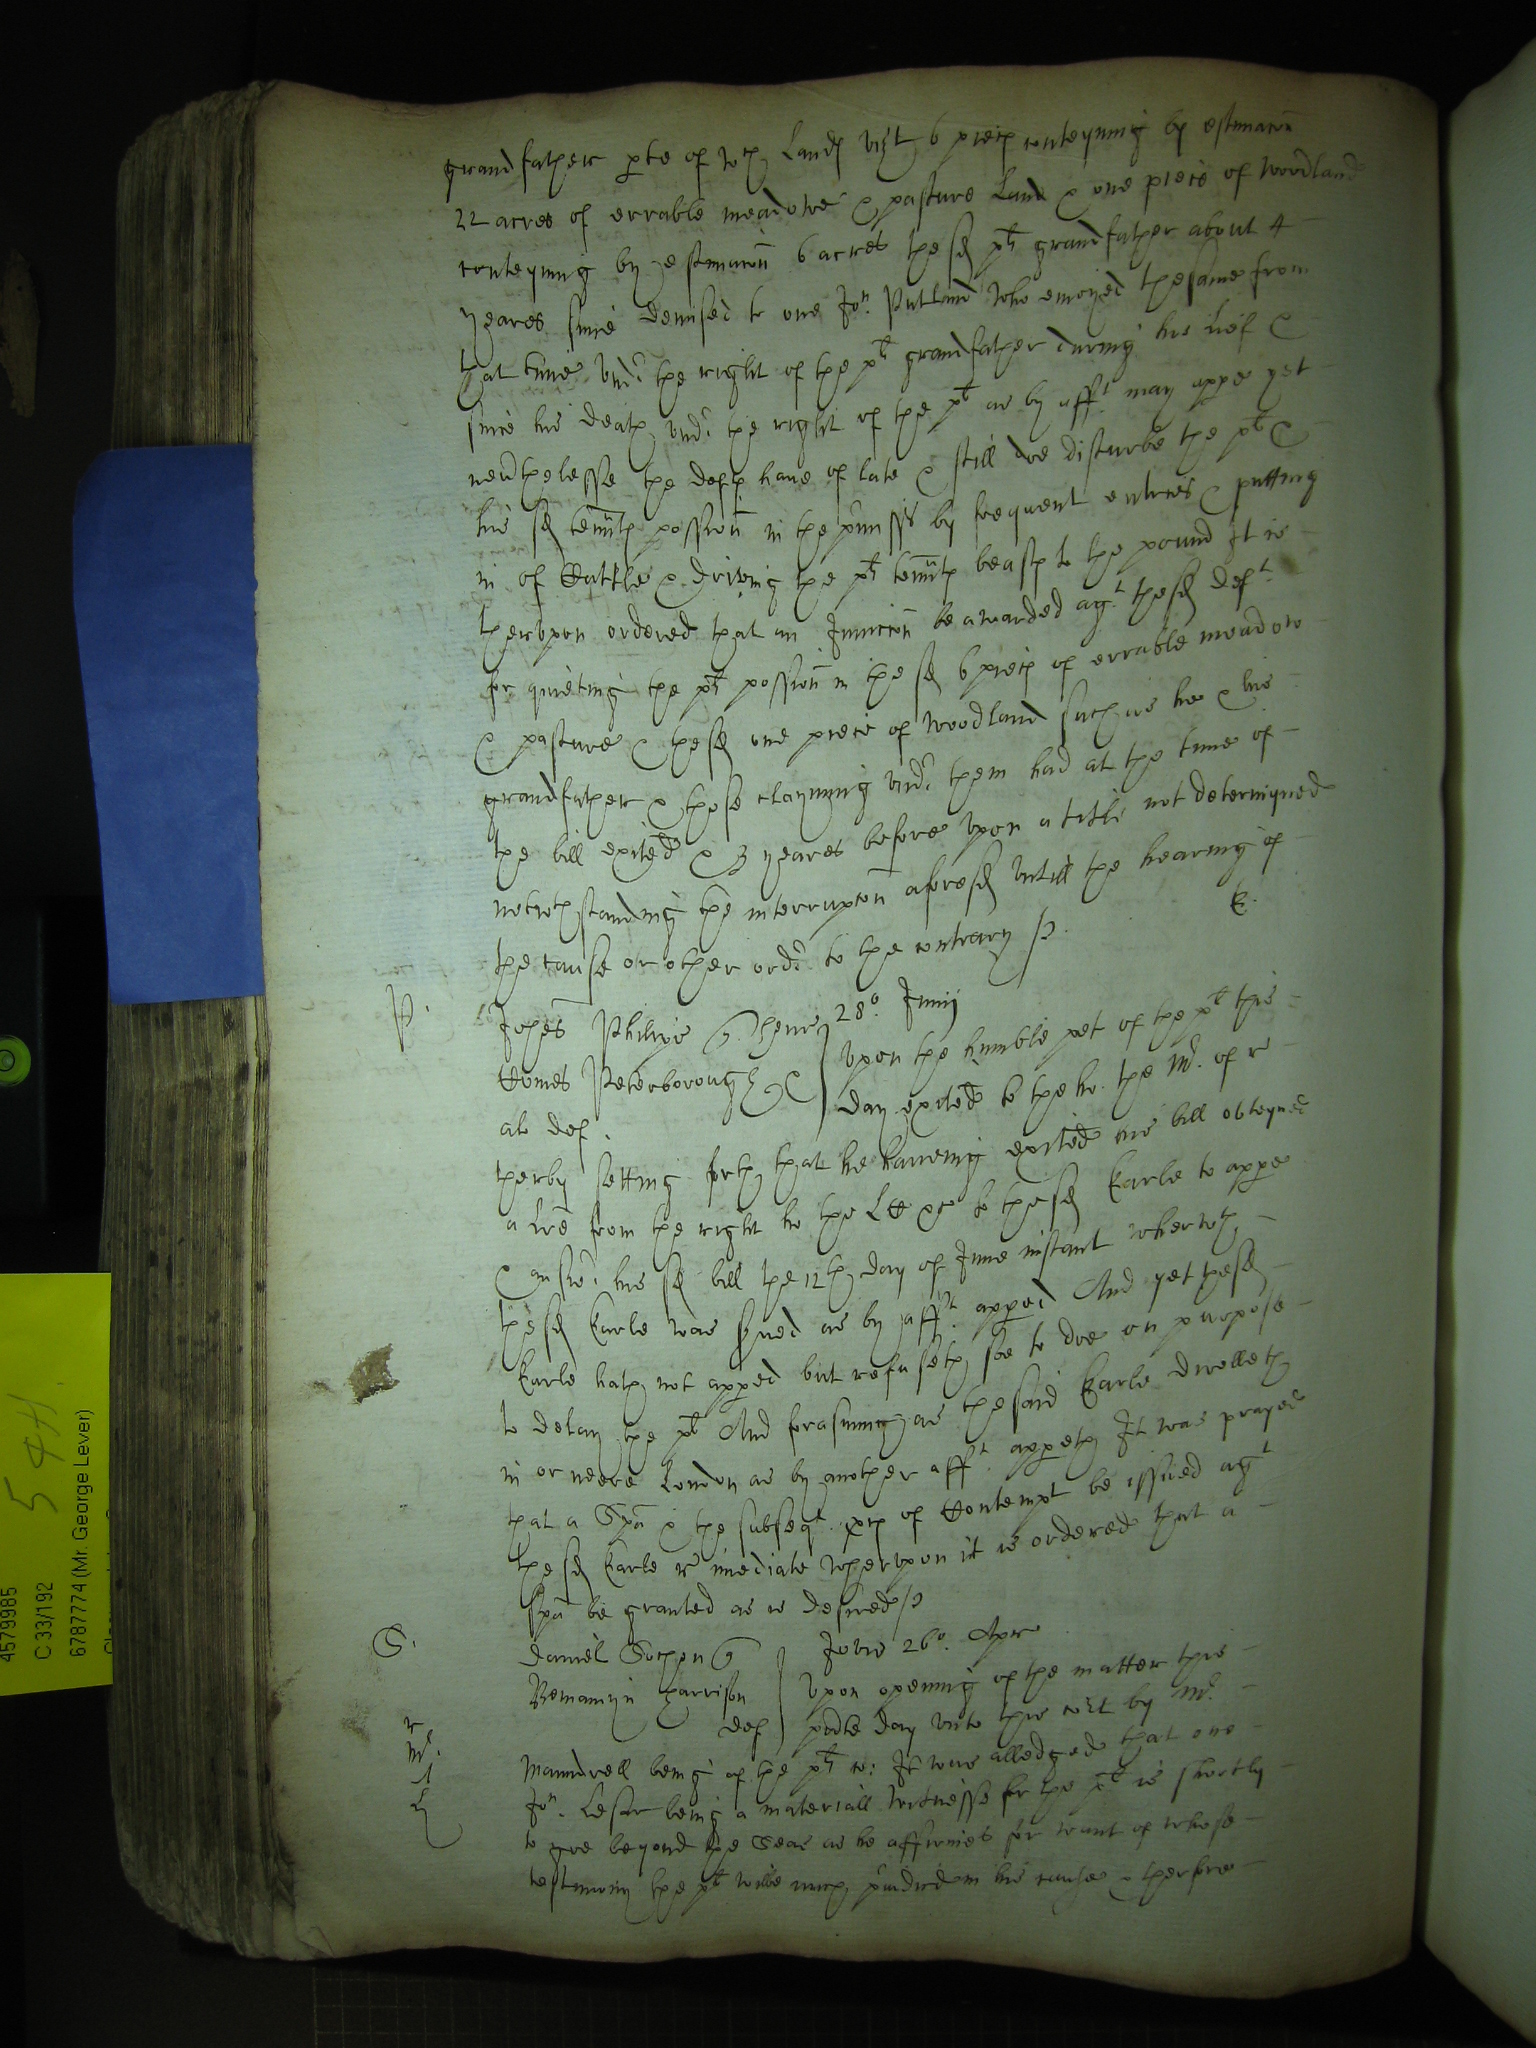 grandfather pte of wch Landℓ vizt 6 piecℓ conteyning by estimacoñ
22 acres of errable meadowe & pasture Land & one piece of woodland
conteyning by estimacoñ 6 acres the sd plts grandfather about 4
yeares since demised to one Jon. who enioyed the same from
that time vndr. the right of the plts grandfather during his lief &
since his death vndr. the right of the plt as by afft. may appe yet
neuthelesse the deftℓ haue of late & still doe disturbe the plt &
his sd teñntℓ possioñ in the pmissℓ by frequent entries & putting
in of Cattle & driving the plts teñntℓ beastℓ to the pound It is
therevpon ordered that an Iniuncoñ be awarded agt. the sd deft.
for quieting the plts possioñ in the sd 6 piecℓ of errable meadow
& pasture & the sd one piece of woodland such as he & his
grandfather & those clayming vndr. them had at the time of
the bill exited & 3 yeares before vpon a title not determyned
notwthstanding the interrupcoñ aforesd vntill the hearing of
the cause or other ordr. to the contrary /p. E.
P.
Johes Philips q. Henr 28o. Junij
Comes Peterborough & Vpon the humble pet of the plt this
al def. day exited to the ho. the Mr. of r
therby setting forth that he haveing exited his bill obteyned
a lre from the right ho the LC &c to the sd Earle to appe
& answr. his sd bill the 12th day of June instant wherwth
the sd Earle was serued as by afft. apped And yet the sd
Earle hath not apped but refuseth soe to doe on purpose
to delay the plt And forasmuch as the said Earle dwelleth
in or neere London as by another afft. appeth It was prayed
that a Spa & the subseqt. pcs of Contempt be issued agt
the sd Earle r imediate Wherevpon it is ordered that a
spa be granted as is desired /p
S.
Daniel q Jovis 26o. Apr
Beniamyn Harrison Vpon opening of the matter this
def pnte day vnto this cort by Mr.
r
Mr.
Maundrell being of the plts co: It was alledged that one
Jon. being a materiall witnesse for the plt is shortly
to goe beyond the Seas as he affirmes for want of whose
testimony the plt wilbe much piudiced in his cause & therfore
4579985
C 33/192
6787774 (Mr. George Lever)
544.